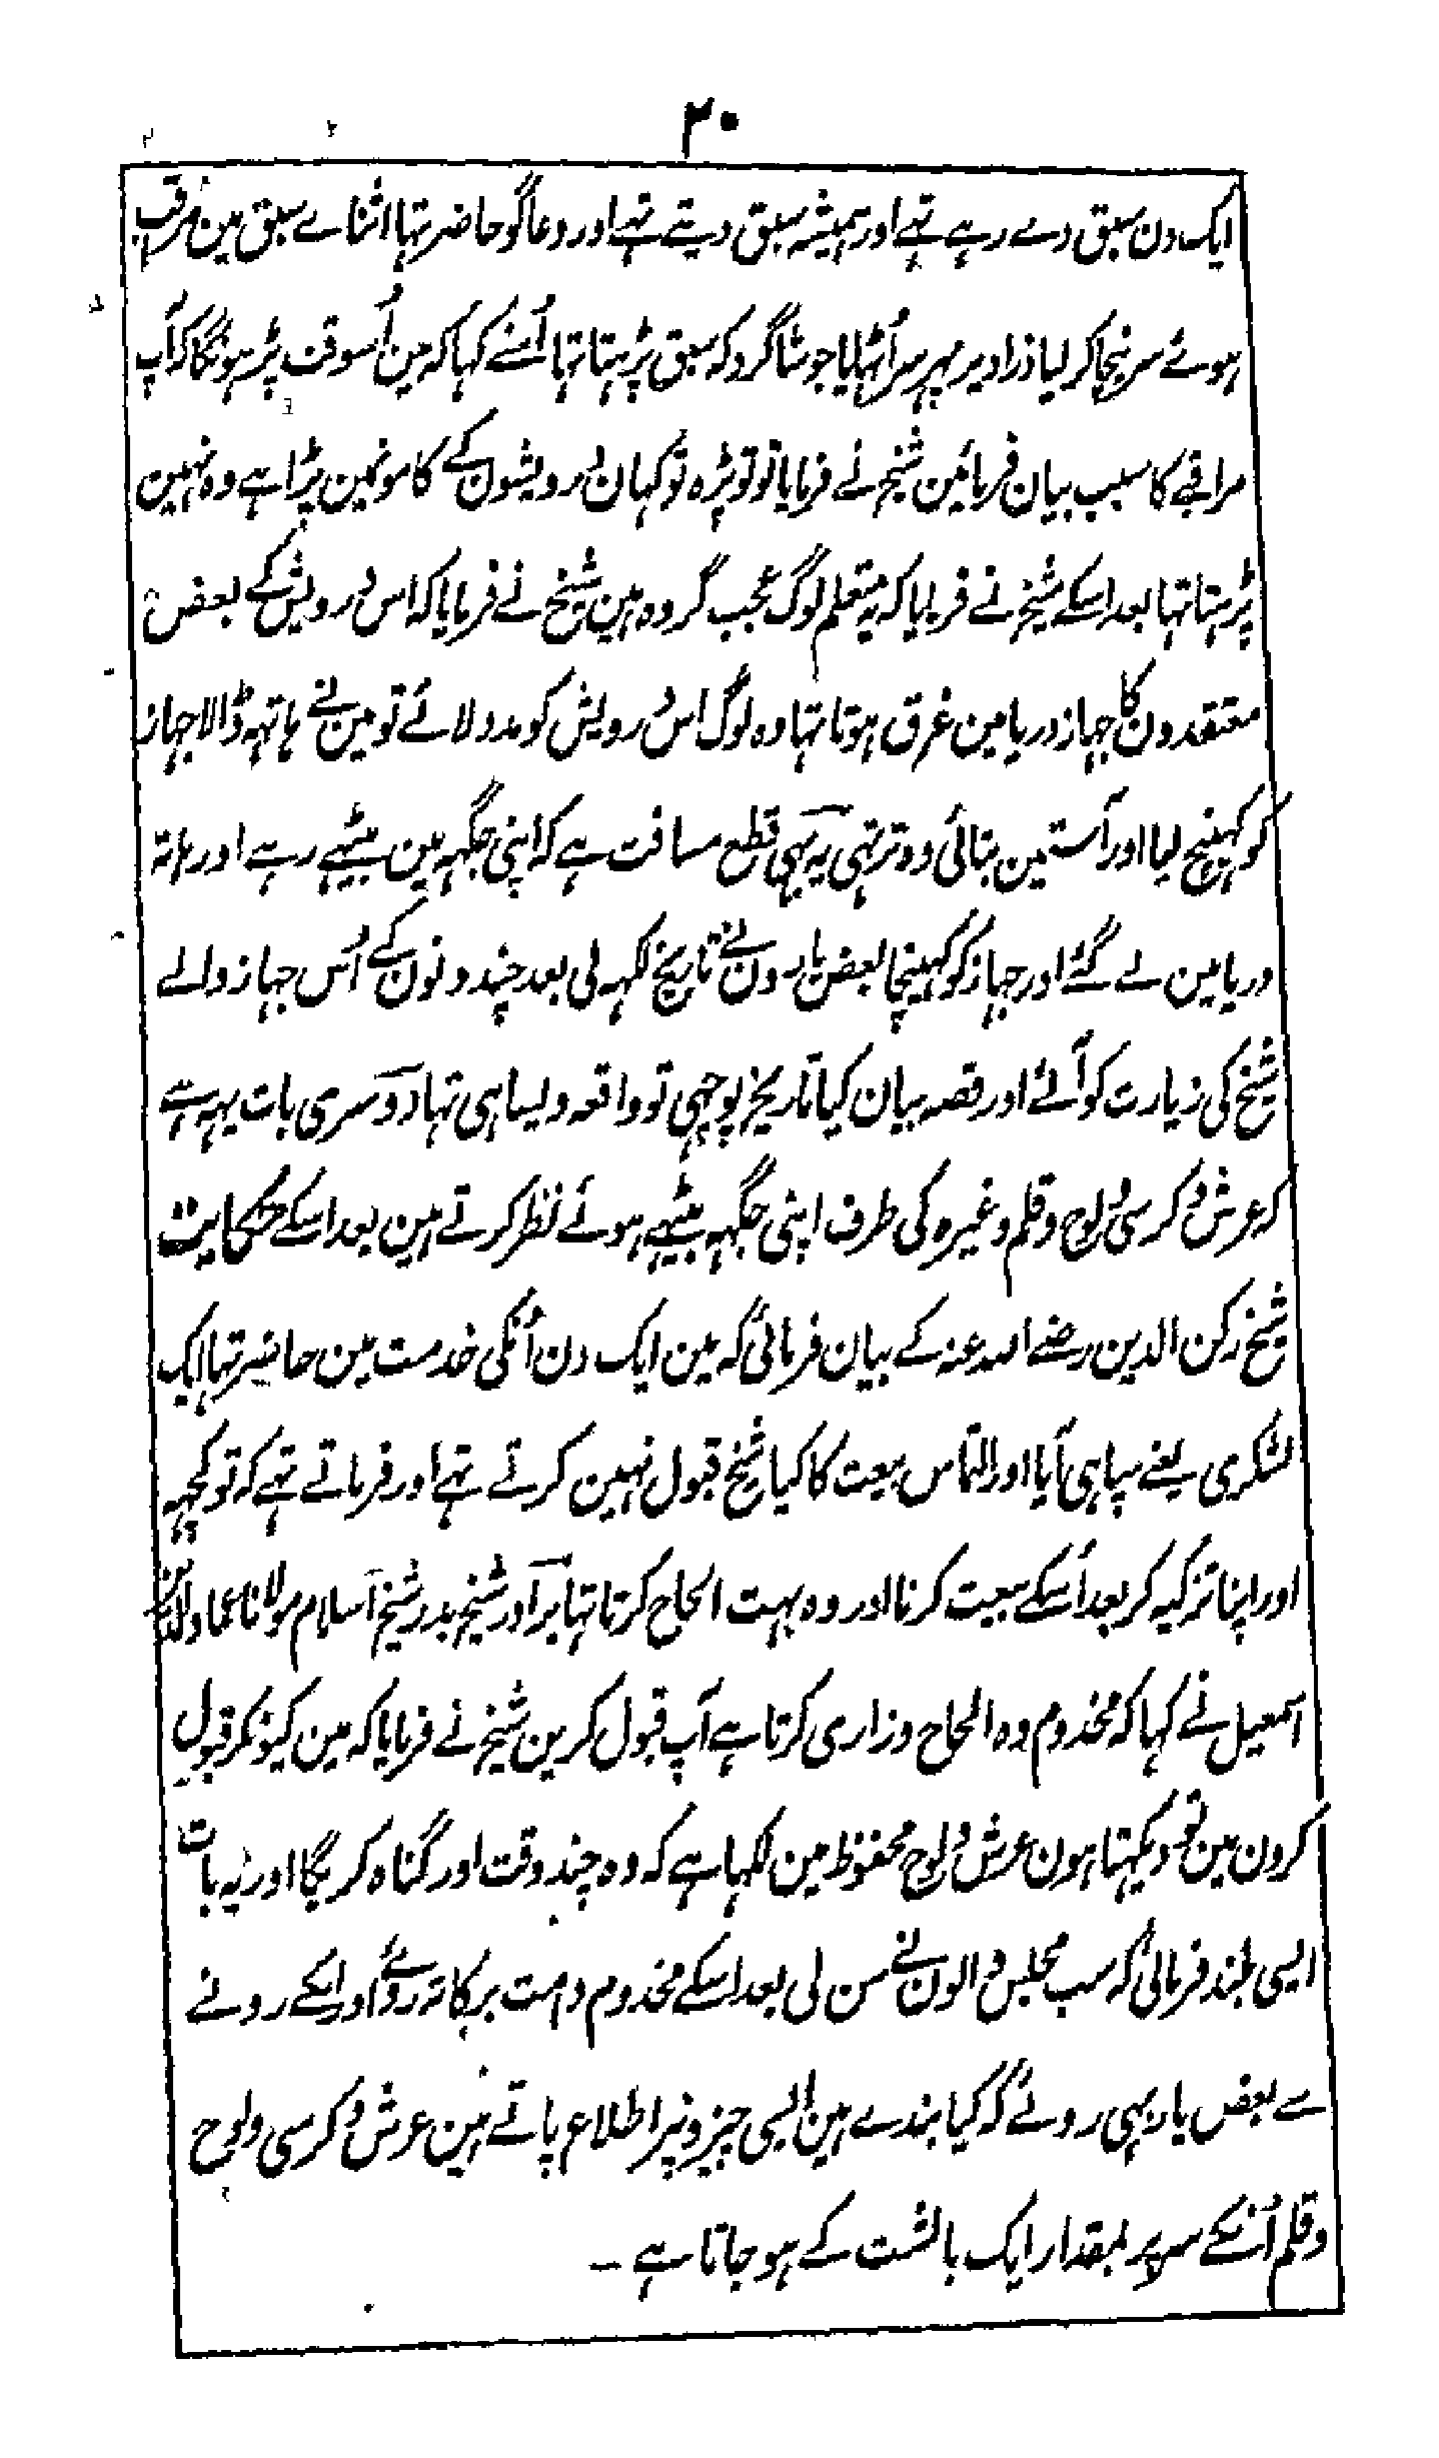 ۳۰
ایک دن سبق دے رہے تہے اور ہمیشہ سبق دیتے تہے اور دعاگو حاضر تہا اثنائے سبق مین مراقب
ہوئے سر نیچا کر لیا ذرا دیر مین پہر سر اُٹہا لیا جو شاگرد کہ سبق پڑہتا تہا اُسنے کہا کہ مین اُسوقت پڑہونگا کہ آپ
مراقبے کا سبب بیان فرمائین شیخ نے فرمایا تو تو پڑہ تو کہان درویشون کے کامونمین پڑا ہے وہ نہین
پڑہتا تہا بعد اسکے شیخ نے فرمایا کہ یہ متعلم لوگ عجب گروہ ہین شیخ نے فرمایا کہ اس درویش کے بعض
معتقدون کا جہاز دریا مین غرق ہوتا تہا وہ لوگ اس درویش کو مدد لائے تو مین نے ہاتہہ ڈالا جہاز
کو کہینچ لیا اور آستین بتائی وہ تر تہی یہ بہی قطع مسافت ہے کہ اپنی جگہہ مین بیٹہے رہے اور ہاتہ
دریا مین لے گئے اور جہاز کو کہینچا بعض یارون نے تاریخ لکہہ لی بعد چند دنون کے اُس جہاز والے
شیخ کی زیارت کو آئے اور قصہ بیان کیا تاریخ پوچہی تو واقعہ ویسا ہی تہا دوسری بات یہہ ہے
کہ عرش و کرسی و لوح و قلم وغیرہ کی طرف اپنی جگہہ بیٹہے ہوئے نظر کرتے ہین بعد اسکے حکایت
شیخ رکن الدین رضے اللہ عنہ کے بیان فرمائی کہ مین ایک دن اُنکی خدمت مین حاضر تہا ایک
لشکری یعنے سپاہی آیا اور التماس بیعت کا کیا شیخ قبول نہین کرتے تہے اور فرماتے تہے کہ تو کچہہ
اور اپنا تزکیہ کر بعد اُسکے بیعت کرنا اور وہ بہت الحاح کرتا تہا برادر شیخ بدر شیخ اسلام مولانا عماد الدین
اسمعیل نے کہا کہ مخدوم وہ الحاح وزاری کرتا ہے آپ قبول کرین شیخ نے فرمایا کہ مین کیونکر قبول
کرون مین تو دیکہتا ہون عرش و لوح محفوظ مین لکہا ہے کہ وہ چند وقت اور گناہ کریگا اور یہ بات
ایسی بلند فرمائی کہ سب مجلس والون نے سن لی بعد اسکے مخدوم دامت برکاتہ روئے اور انکے رونے
سے بعض یار بہی روئے کہ کیا بندے ہین ایسی چیزونپر اطلاع پاتے ہین عرش و کرسی ولوح
وقلم اُنکے سر پر بمقدار ایک بالشت کے ہو جاتا ہے ۔